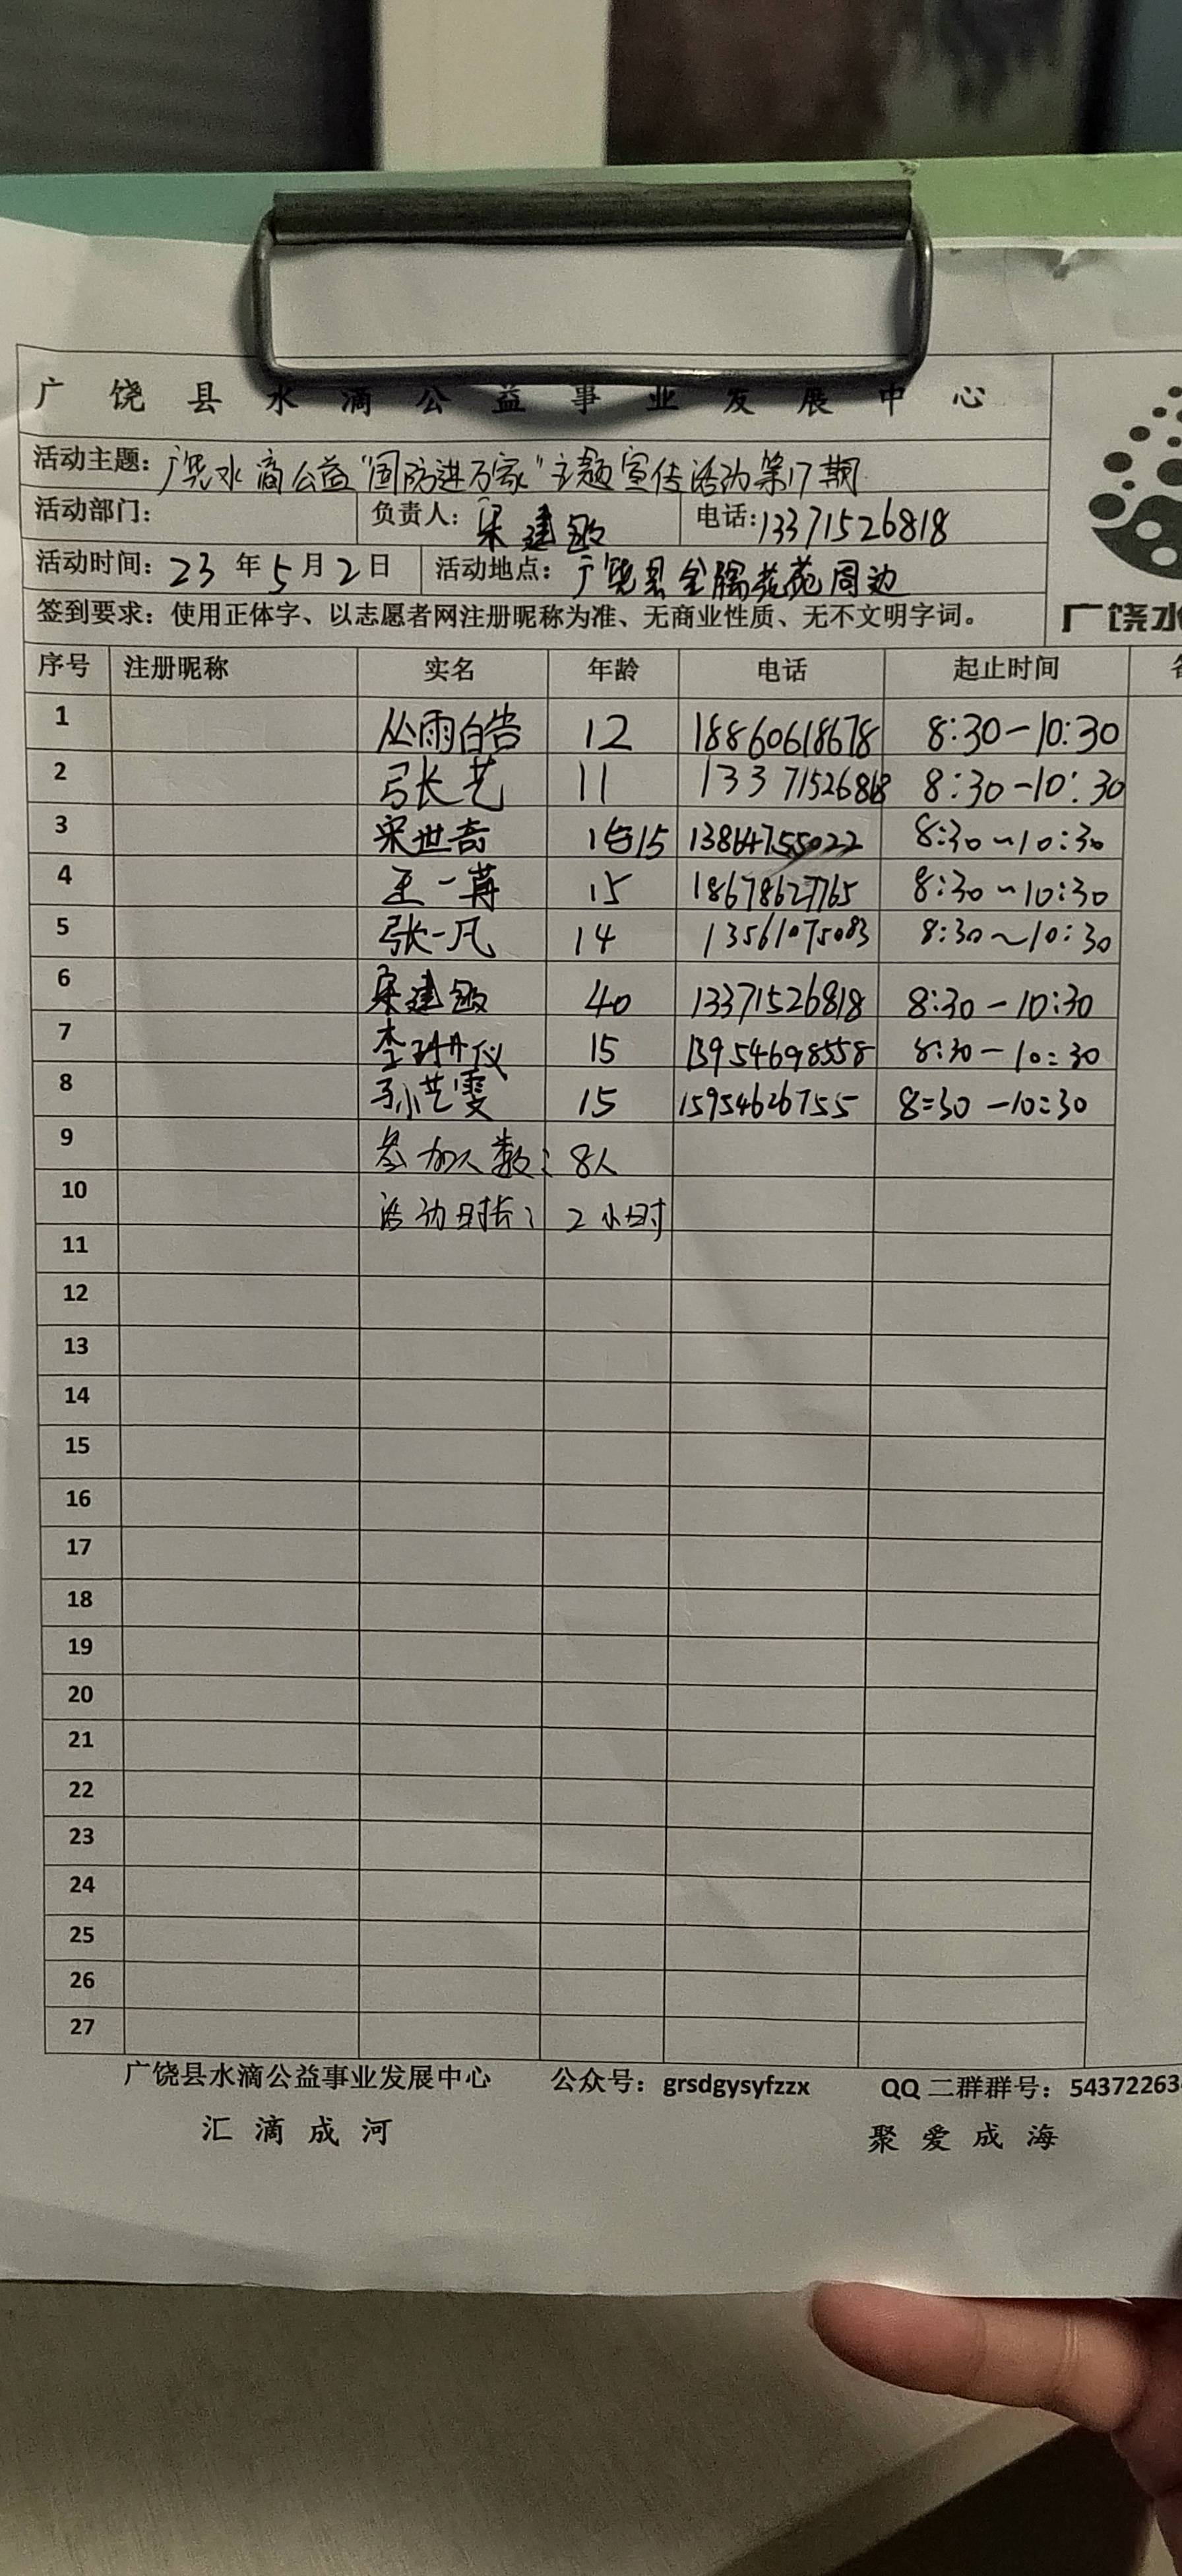 广饶县水滴公益事业发展中心
活动主题：广饶水滴公益"国防进万家"主题宣传活动第17期
活动部门： 负责人：宋建敏 电话：13371526818
活动时间：23年5月2日 活动地点：广饶县金陽花苑周边
签到要求：使用正体字、以志愿者网注册昵称为准、无商业性质、无不文明字词。
广饶水
序号 注册昵称 实名 年龄 电话 起止时间
1 丛雨皓 12 18860618678 8:30-10:30
2 张艺 11 13371526818 8:30-10:30
3 宋世奇 15 13864755022 8:30~10:30
4 王一苒 15 18678627765 8:30~10:30
5 张一凡 14 13561075083 8:30~10:30
6 宋建敏 40 13371526818 8:30-10:30
7 李珊仪 15 13954698558 8:30-10:30
8 孙艺雯 15 15954626755 8:30-10:30
9 参加人数：8人
10 活动时长：2小时
11
12
13
14
15
16
17
18
19
20
21
22
23
24
25
26
27
广饶县水滴公益事业发展中心 公众号：grsdgysyfzzx QQ二群群号：54372263
汇滴成河 聚爱成海